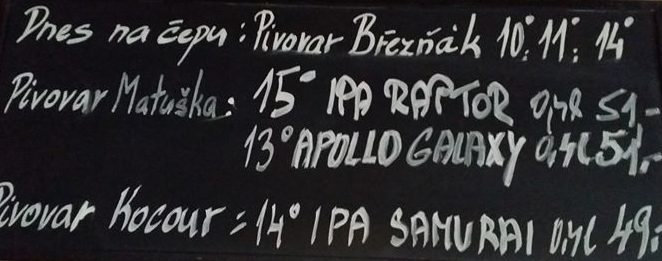 Dnes na čepu: Pivovar Březňák 10°. 11°. 14°
Pivovar Matuška: 15° IPA RAPTOR 0,4l 51,-
13° APOLLO GALAXY 0,4l 51,-
Pivovar Kocour = 14° IPA SAMURAI 0,4l 49,-